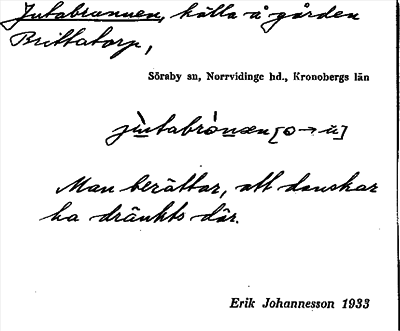 Jutabrunnen, källa å gården
Brittatorp,
Söraby sn, Norrvidinge hd., Kronobergs län
jùtabrònən [o → u]
Man berättar, att danskar
ha dränkts där.
Erik Johannesson 1933